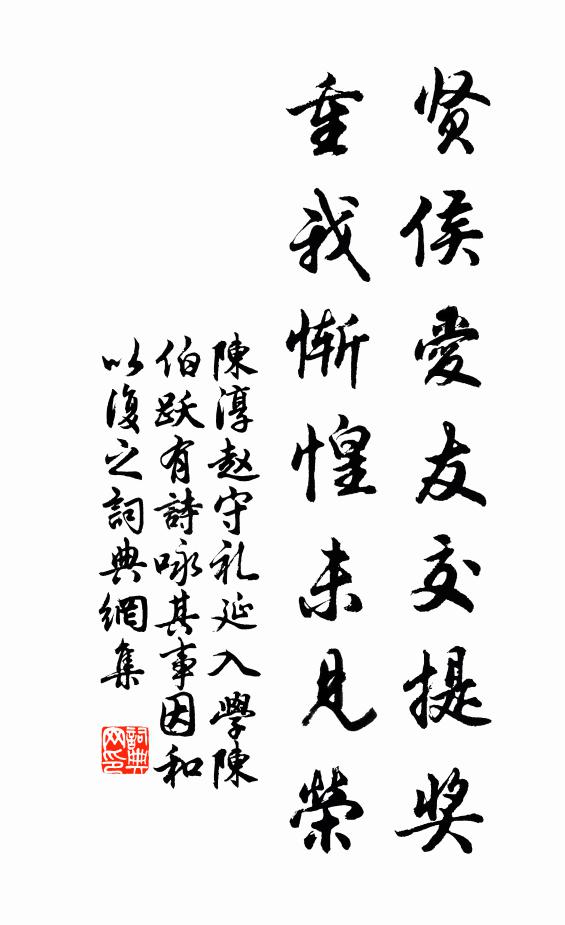 贤侯爱友交提奖
重我惭惶未见榮
陳淳赵守礼延入學陳
伯跃有詩咏其事因和
以復之詞典網集
詞典网印